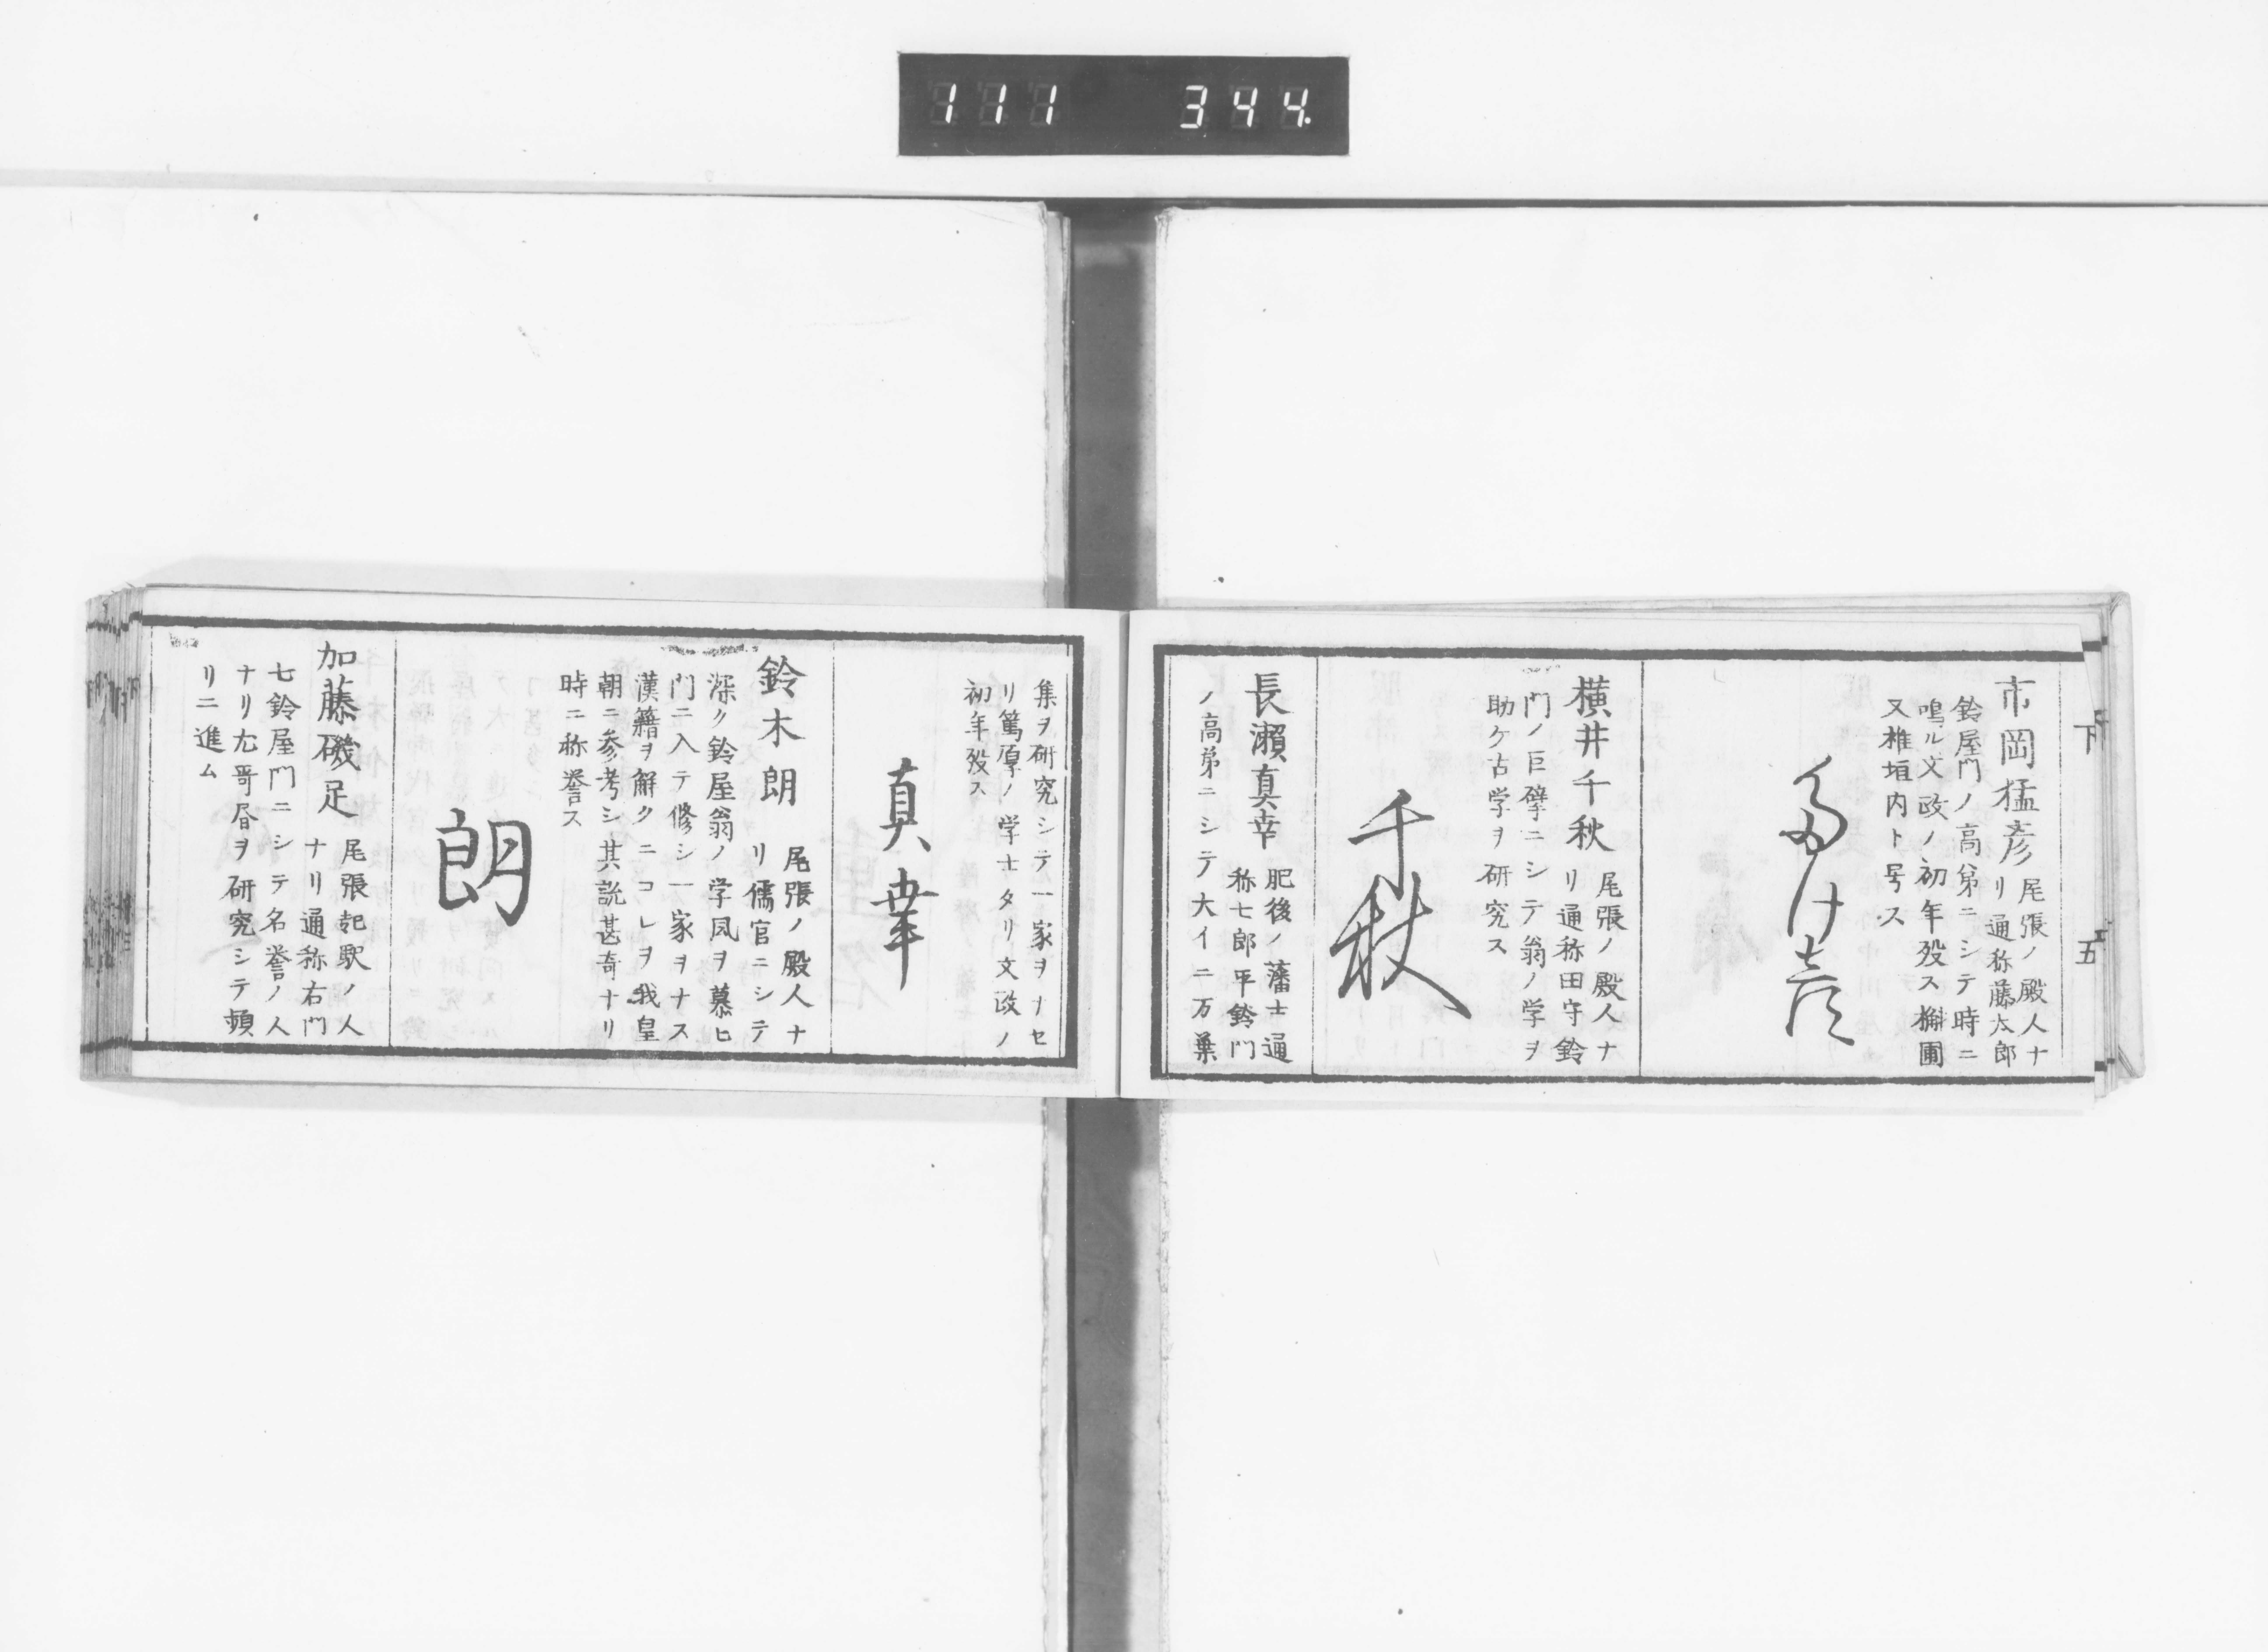 111 344.
下 五
市岡猛彦 尾張ノ殿人ナ
リ通称藤太郎
鈴屋門ノ高第ニシテ時ニ
鳴ル文政ノ初年歿ス槲園
又椎垣内ト号ス
たけ彦
横井千秋 尾張ノ殿人ナ
リ通称田守鈴
門ノ巨擘ニシテ翁ノ学ヲ
助ケ古学ヲ研究ス
千秋
長瀬真幸 肥後ノ藩士通
称七郎平鈴門
ノ高第ニシテ大イニ万葉
集ヲ研究シテ一家ヲナセ
リ篤厚ノ学士タリ文政ノ
初年歿ス
真幸
鈴木朗 尾張ノ殿人ナ
リ儒官ニシテ
深ク鈴屋翁ノ学風ヲ慕ヒ
門ニ入テ修シ一家ヲナス
漢籍ヲ解クニコレヲ我皇
朝ニ参考シ其説甚奇ナリ
時ニ称誉ス
朗
加藤磯足 尾張起駅ノ人
ナリ通称右門
七鈴屋門ニシテ名誉ノ人
ナリ尤哥昏ヲ研究シテ頻
リニ進ム